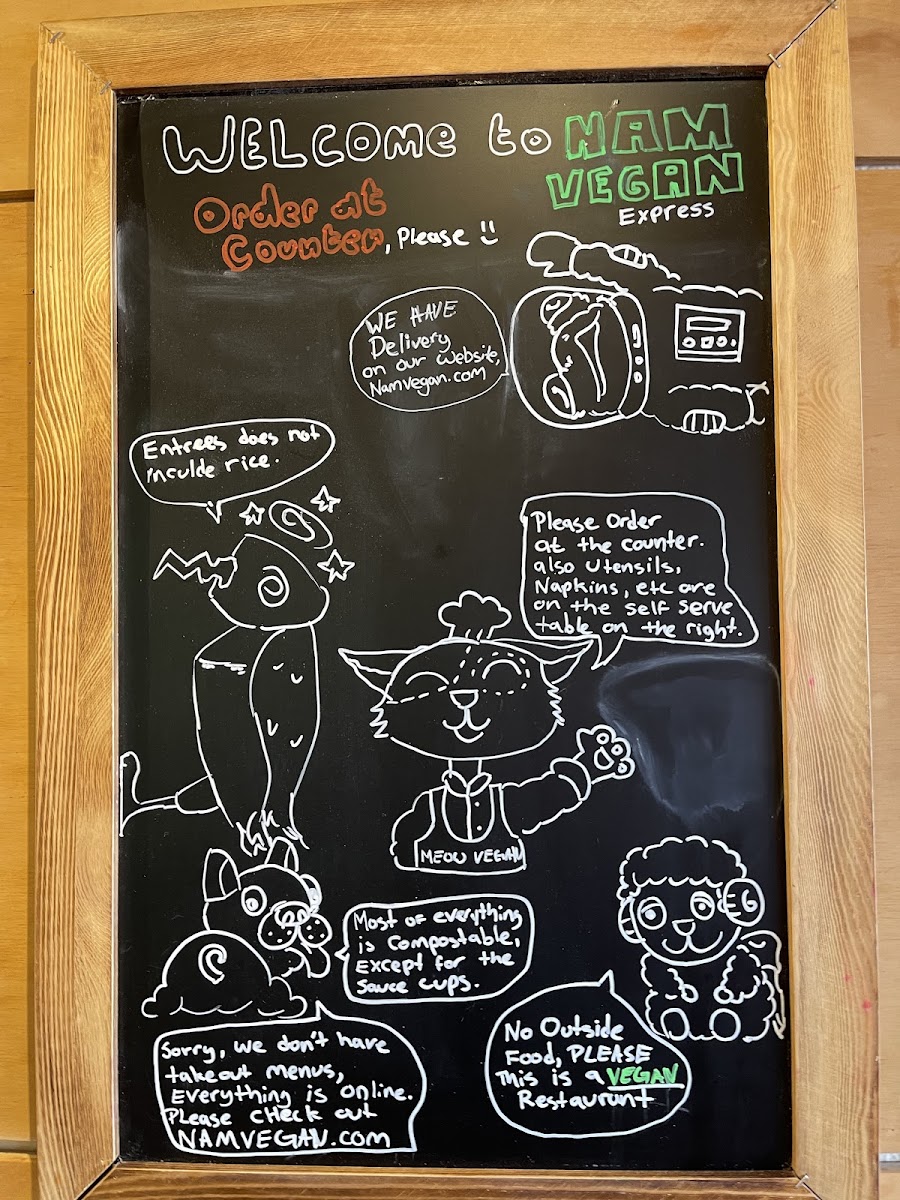 WELCOME to NAM
VEGAN
Express
Order at
Counter, Please
WE HAVE
Delivery
on our website,
Namvegan.com
Entrees does not
inculde rice.
Please Order
at the counter.
also Utensils,
Napkins, etc are
on the self serve
table on the right.
MEOW VEGAN
Most of everything
is compostable,
Except for the
sauce cups.
Sorry, we don't have
takeout menus,
Everything is online.
Please check out
NAMVEGAN.com
No Outside
Food, PLEASE
This is a VEGAN
Restaurunt